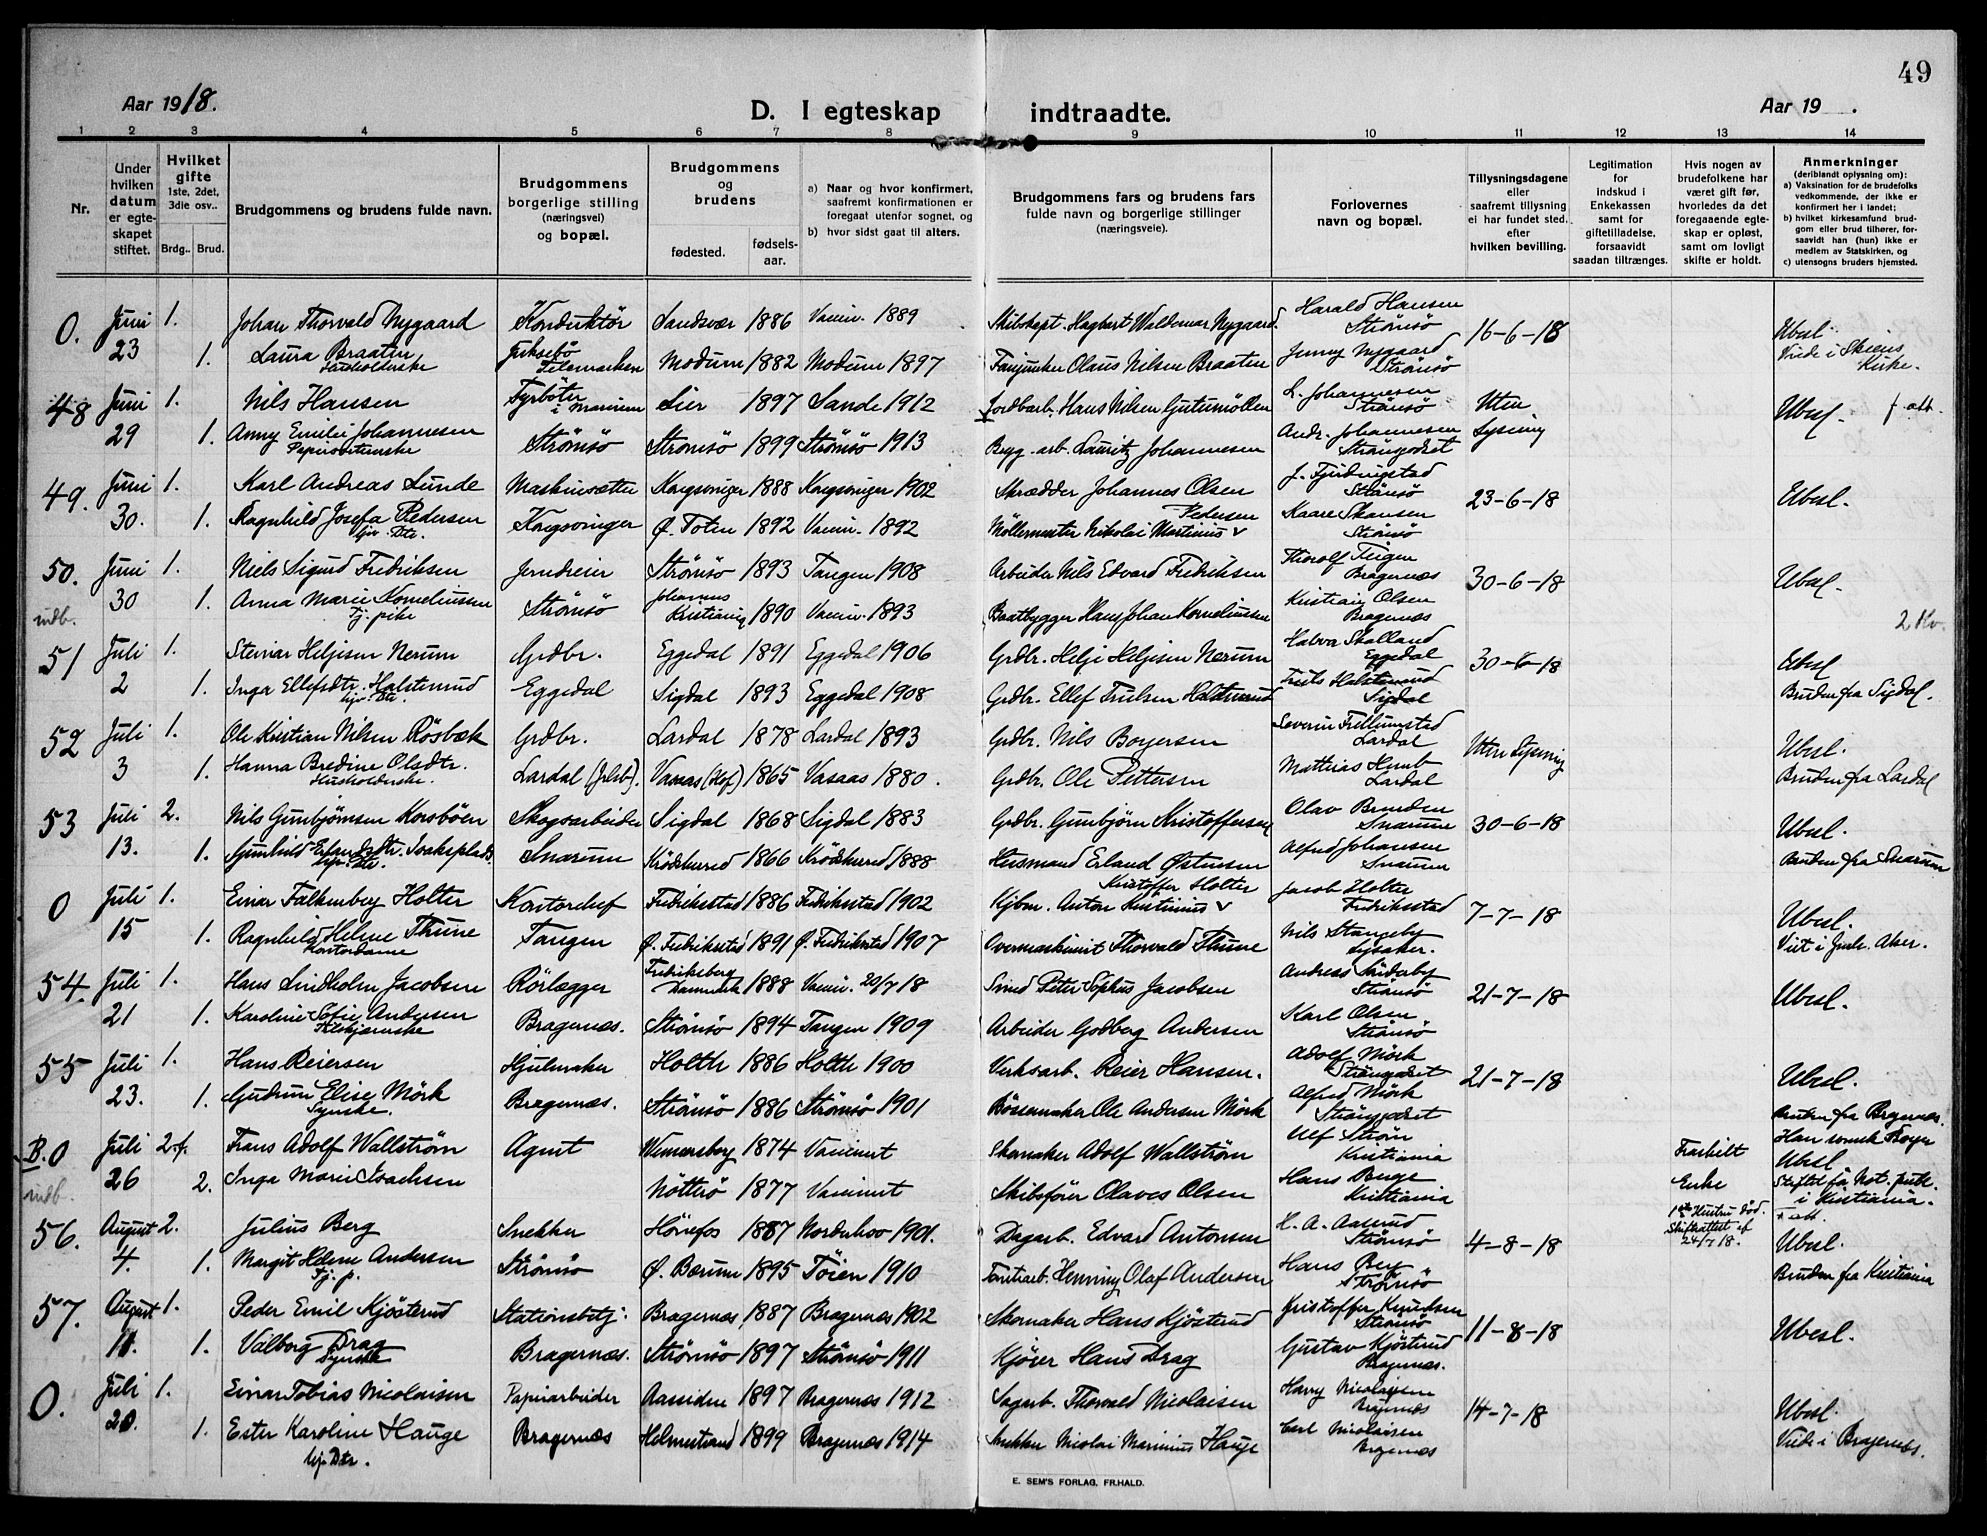 49
Aar 1918.
D. I egteskap indtraadte.
Aar 19 .
1 2 3 4 5 6 7 8 9 10 11 12 13 14
Nr.
Under hvilken datum er egte- skapet stiftet.
Hvilket gifte 1ste, 2det, 3die osv..
Brdg.. Brud.
Brudgommens og brudens fulde navn.
Brudgommens borgerlige stilling (næringsvei) og bopæl.
Brudgommens og brudens
fødested.
fødsels- aar.
a) Naar og hvor konfirmert, saafremt konfirmationen er foregaat utenfor sognet, og
b) hvor sidst gaat til alters.
Brudgommens fars og brudens fars fulde navn og borgerlige stillinger (næringsveie).
Forlovernes navn og bopæl.
Tillysningsdagene eller saafremt tillysning ei har fundet sted. efter hvilken bevilling.
Legitimation for indskud i Enkekassen samt for giftetilladelse, forsaavidt saadan tiltrænges.
Hvis nogen av brudefolkene har været gift før, hvorledes da det foregaaende egte- skap er opløst, samt om lovligt skifte er holdt.
Anmerkninger (deriblandt oplysning om):
a) Vaksination for de brudefolks vedkommende, der ikke er konfirmert her i landet;
b) hvilket kirkesamfund brud- gom eller brud tilhører, for- saavidt han (hun) ikke er medlem av Statskirken, og
c) utensogns bruders hjemsted.
0. Juni 1. Johan Thorvald Nygaard Konduktør Sandsvær 1886 Vaccin. 1889 Skibskapt. Hagbart Waldemar Nygaard. Harald Hansen Strömsö 16-6-18 Ubesl
23 1. Laura Braaten Husholderske Telemarken Modum 1882 Modum 1897 Fanejunker Claus Nilsen Braaten Jenny Nygaard Strömsö Viede i Skiens Kirke.
48 Juni 1. Nils Hansen Fyrböter i Marinen Sier 1897 Sande 1912 Jordbarb. Hans Nilsen Gutumöllen L. Johannesen Strömsö Uten Lysning Ubesl. f. att.
29 1. Anny Emilie Johannesen Strömsö Strömsö 1899 Strömsö 1913 Bryg. arb. Lauritz Johannesen Andr. Johannesen Strömsgodset
49. Juni 1. Karl Andreas Lunde Maskinsætter Kongsvinger 1888 Kongsvinger 1902 Skrædder Johannes Olsen J. Fjerdingstad Strömsö 23-6-18 Ubesl.
30. 1. Ragnhild Josefa Pedersen Hjv. Dtr. Kongsvinger Ø. Toten 1892 Vaccin. 1892 Möllermester Nikolai Martinius Pedersen Kaare Skansen Strömsö
50. Juni 1. Niels Sigurd Fredriksen Jerndreier Strömsö 1893 Tangen 1908 Arbeider Nils Edvard Fredriksen Thorolf Teigen Bragernæs 30-6-18 Ubesl.
indb. 30 1. Anna Marie Korneliussen tj. pike Strömsö Johannes Kristiania 1890 Vaccin. 1893 Baatbygger Hans Johan Korneliussen Kristian Olsen Bragernæs 2 Kv.
51 Juli 1. Steinar Helgesen Nerum Grdbr. Eggedal 1891 Eggedal 1906 Grdbr. Helge Helgesen Nerum Halvor Skalland Eggedal 30-6-18 Ubesl
2 1. Inga Ellefsdtr. Halstenrud Hjv. Dtr. Eggedal Sigdal 1893 Eggedal 1908 Grdbr. Ellef Trulsen Halstenrud Truls Halstenrud Sigdal Bruden fra Sigdal.
52 Juli 1. Ole Kristian Nilsen Rösbæk Grdbr. Lardal 1878 Lardal 1893 Grdbr. Nils Boyersen Severin Lardal Uten Lysning Ubesl.
3 1. Hanna Bredine Olsdtr. Husholderske. Lardal (Jrlsb). Vasaas (Hof) 1865 Vasaas 1880. Grdbr. Ole Pettersen Mathias Lardal Bruden fra Lardal
53 Juli 2. Nils Gunbjørnsen Korsbøen Skogsarbeider Sigdal 1868 Sigdal 1883 Grdbr. Gunbjörn Kristoffersen Olav Brurden Snarum 30-6-18 Ubesl.
13. 1. Gunhild Erlandsdtr. Isaksplads. Hjv. Dtr. Snarum Krödsherred 1866 Krödsherred 1888 Husmand Erland Østensen Alfred Johansen Snarum Bruden fra Snarum
0 Juli 1. Einar Falkenberg Holter Kontorchef Fredriksstad 1886 Fredriksstad 1902 Kjbm. Anton Kristinius Kristoffer Holter Jacob Holter Fredriksstad 7-7-18 Ubesl.
15 1. Ragnhild Helene Thune Kontordame Tangen Ø. Fredriksstad 1891 Ø. Fredriksstad 1907 Overmaskinist Thorvald Thune Nils Stangeby Lysaker. Viet i Aker.
54. Juli 1. Hans Lindholm Jacobsen Rörlægger Fredriksberg Danmark 1888 Vaccin. 20/7 18 Smed Peter Sophus Jacobsen Andreas Söderby Strömsö 21-7-18 Ubesl.
21 1. Karoline Sofie Andersen Bragernæs. Strömsö 1894 Tangen 1909 Arbeider Godberg Andersen Karl Olsen Strömsö
55 Juli 1. Hans Reiersen Hjulmaker Holth 1886 Holth 1900 Verksarb. Reier Hansen. Adolf Mörk Strömsgodset 21-7-18 Ubesl.
23. 1. Gudrun Elise Mörk Syerske. Bragernæs. Strömsö 1886 Strömsö 1901 Bössemaker Ole Andersen Mörk Alfred Mörk Strömsgodset Bruden fra Bragernæs.
B.0 Juli 2. f. Frans Adolf Wallström Agent Wenersborg 1874 Vaccinert Skomaker Adolf Wallström Ulf Ström Kristiania Fraskilt Han svensk Borger Ubesl
indb. 26 2. Inga Marie Isachsen Nötterö 1877 Vaccinert Skibsfører Olaves Olsen Hans Kristiania Enke Stiftet for Not. publ. i Kristiania.
56. August 2. Julius Berg Snekker Hönefos 1887 Norderhov 1901. Dagarb. Edvard Antonsen H. A. Aasrud Strömsö 4-8-18 1ste Hustru död. Skifteattest af 24/7 18. f. att. Ubesl.
4. 1. Margit Helene Andersen Tj. p. Strömsö Ø. Bærum 1895 Töien 1910 Tomtearb. Henning Olaf Andersen Hans Berg Strömsö Bruden fra Kristiania
57. August 1. Peder Emil Kjösterud Stationsbetj: Bragernæs 1887 Bragernæs 1902 Skomaker Hans Kjösterud Kristoffer Knudsen Strömsö 11-8-18 Ubesl.
11. 1. Valborg Drag Syerske Bragernæs. Strömsö 1897 Strömsö 1911 Kjører Hans Drag Gustav Kjösterud Bragernæs.
0. Juli 1. Einar Tobias Nicolaisen Papirarbeider Aassiden 1897 Bragernæs 1912 Sagarb. Thorvald Nicolaisen Harry Nicolaisen Bragernæs 14-7-18 Ubesl.
20. 1. Ester Karoline Hauge Hjv. Dtr. Bragernæs Holmestrand 1899 Bragernæs 1914 Snekker Nicolai Marinius Hauge Carl Nicolaisen Bragernæs Viede i Bragernæs.
E. SEM'S FORLAG. FR.HALD.